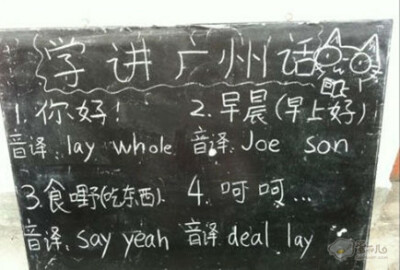 学讲广州话
1. 你好! 2. 早晨(早上好)
音译: lay whole 音译: Joe son
3. 食嘢(吃东西) 4. 呵呵...
音译: say yeah 音译: deal lay